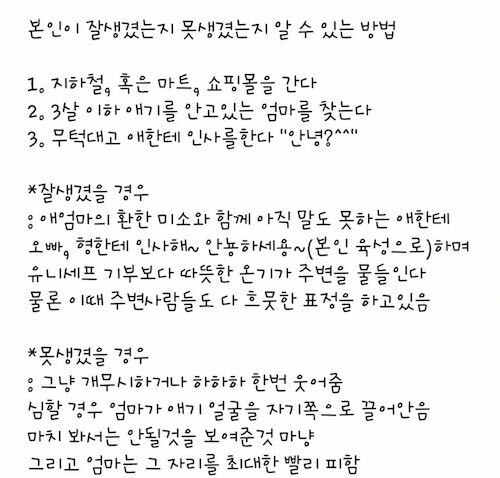 본인이 잘생겼는지 못생겼는지 알 수 있는 방법
1. 지하철, 혹은 마트, 쇼핑몰을 간다
2. 3살 이하 애기를 안고있는 엄마를 찾는다
3. 무턱대고 애한테 인사를한다 "안녕?^^"
*잘생겼을 경우
: 애엄마의 환한 미소와 함께 아직 말도 못하는 애한테
오빠, 형한테 인사해~ 안뇽하세용~(본인 육성으로)하며
유니세프 기부보다 따뜻한 온기가 주변을 물들인다
물론 이때 주변사람들도 다 흐뭇한 표정을 하고있음
*못생겼을 경우
: 그냥 개무시하거나 하하하 한번 웃어줌
심할 경우 엄마가 애기 얼굴을 자기쪽으로 끌어안음
마치 봐서는 안될것을 보여준것 마냥
그리고 엄마는 그 자리를 최대한 빨리 피함